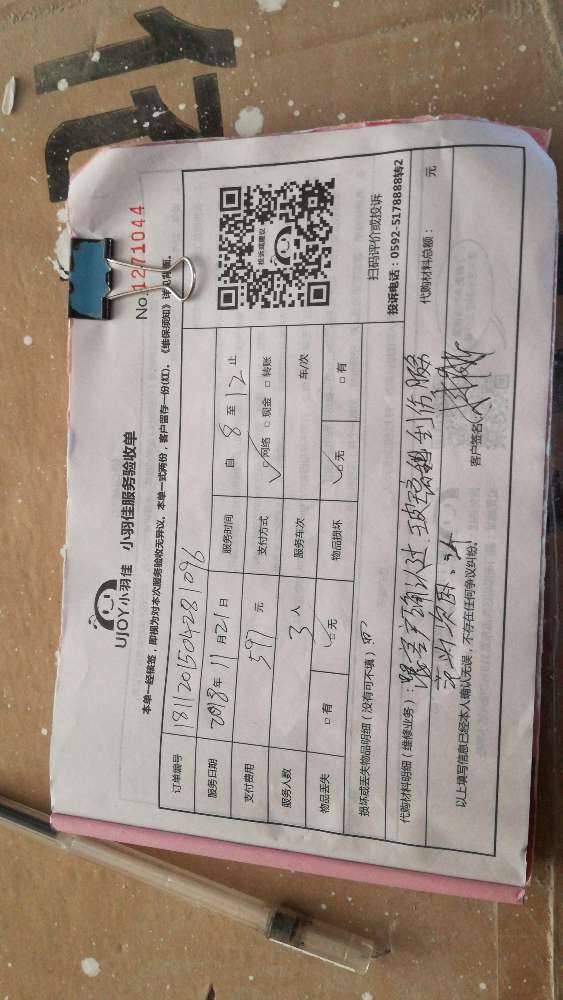 UJOY小羽佳 小羽佳服务验收单
No.1271044
本单一经接签，即视为对本次服务验收无异议。本单一式两份，客户留存一份(红)。《维保须知》详见背面。
订单编号 1811201504281096
服务日期 2018年11月21日 服务时间 自 8 至 12 止
支付费用 597 元 支付方式 ☑网络 □现金 □转账
服务人数 3 人 服务车次 车/次
物品丢失 □有 ☑无 物品损坏 ☑无 □有
投诉或建议
扫码评价或投诉
投诉电话：0592-5178888转2
损坏或丢失物品明细（没有可不填）
代购材料明细（维修业务）：跟客户确认过玻璃
代购材料总额： 元
以上填写信息已经本人确认无误，不存在任何争议纠纷。
客户签名